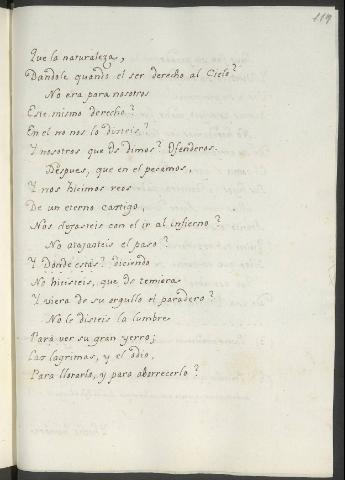 119
Que la naturaleza,
Dandole quando el ser derecho al Cielo?
No era para nosotros
Este mismo derecho?
En el no nos lo disteis?
Y nosotros que ôs dimos? Ofenderos.
Despues, que en el pecamos,
Y nos hicimos reos
De un eterno castigo,
Nos dejasteis con el ir al infierno?
No atajasteis el paso?
Y Donde estás? diciendo
No hicisteis, que ôs temiera
Y viera de su orgullo el paradero?
No le disteis la lumbre
Para ver su gran yerro;
Las lagrimas, y el odio,
Para llorarlo, y para aborrecerlo?